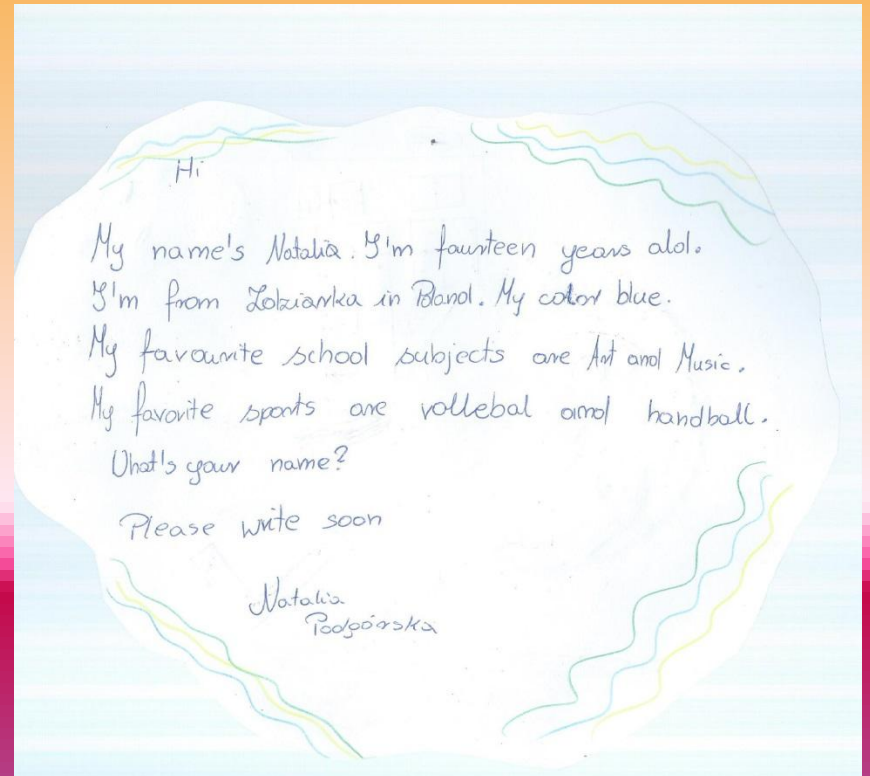 Hi
My name's Natalia. I'm fourteen years old.
I'm from in Poland. My color blue.
My favourite school subjects are Art and Music.
My favorite sports are vollebal and handball.
What's your name?
Please write soon
Natalia
Podgórska